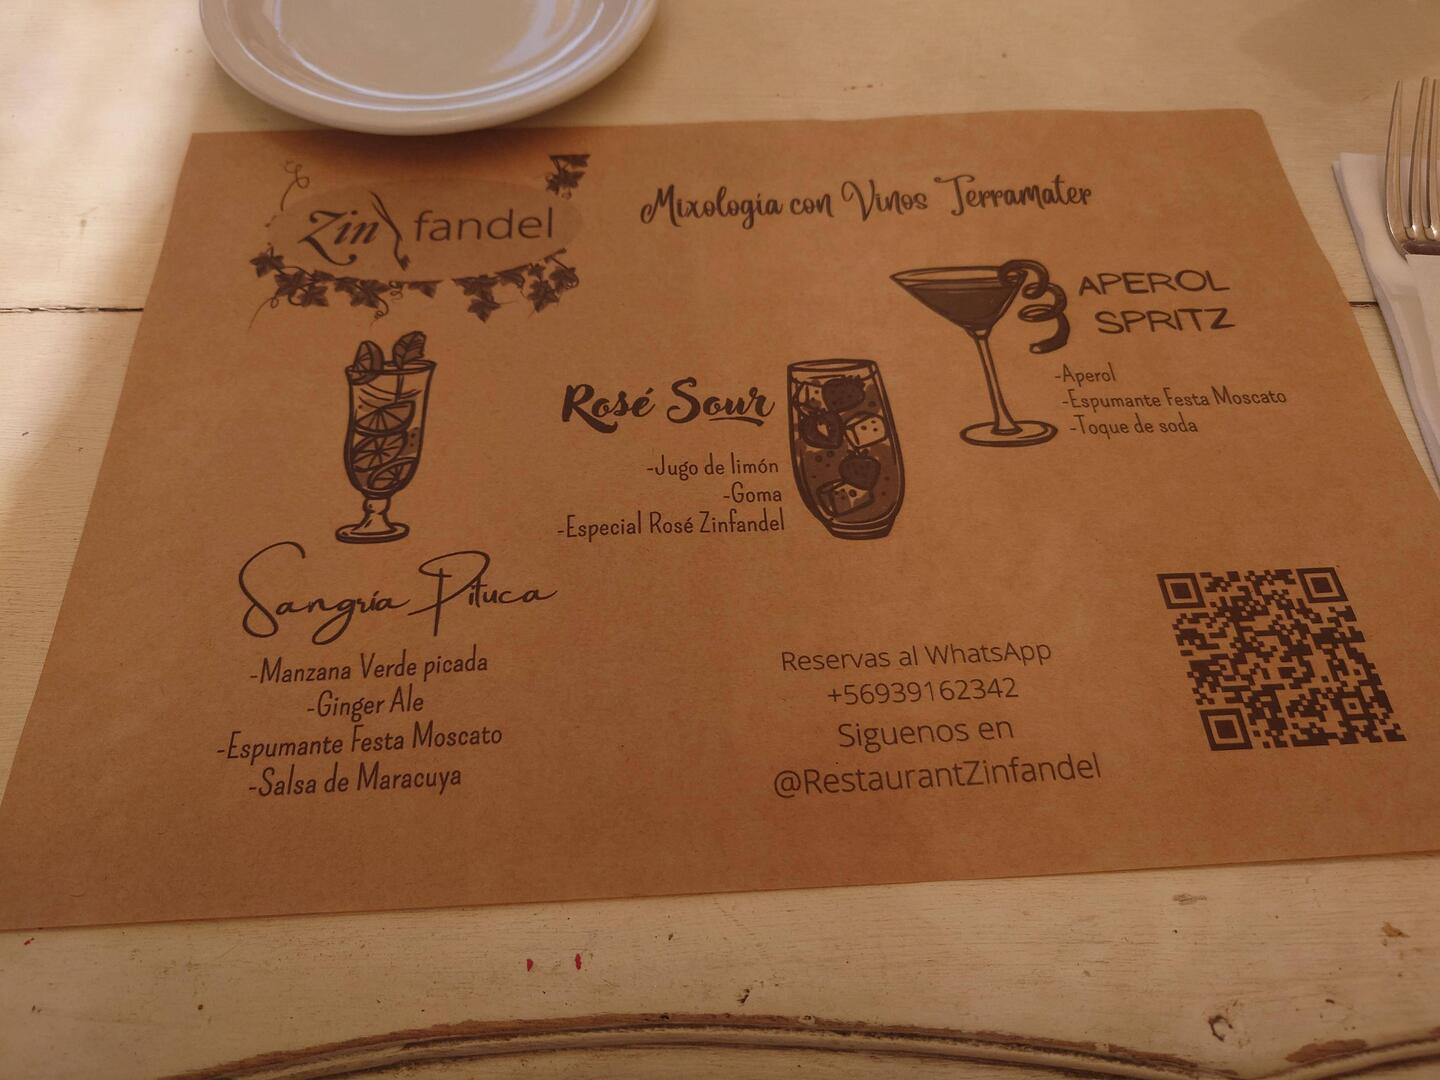 Zinfandel
Mixología con Vinos Terramater
APEROL
SPRITZ
-Aperol
-Espumante Festa Moscato
-Toque de soda
Rosé Sour
-Jugo de limón
-Goma
-Especial Rosé Zinfandel
Sangría Pituca
-Manzana Verde picada
-Ginger Ale
-Espumante Festa Moscato
-Salsa de Maracuya
Reservas al WhatsApp
+56939162342
Siguenos en
@RestaurantZinfandel